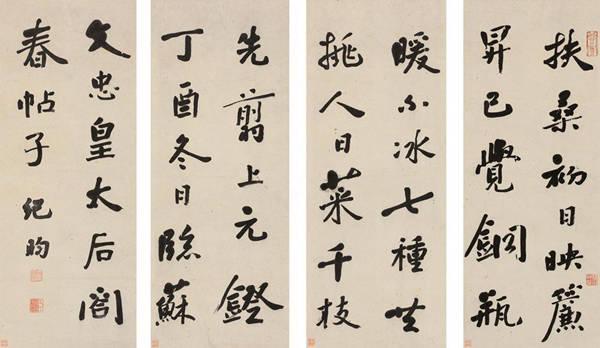 扶桑初日映簾
昇已覺銅瓶
暖不冰七種共
挑人日菜千枝
先剪上元鐙
丁酉冬日臨蘇
文忠皇太后閤
春帖子 紀昀